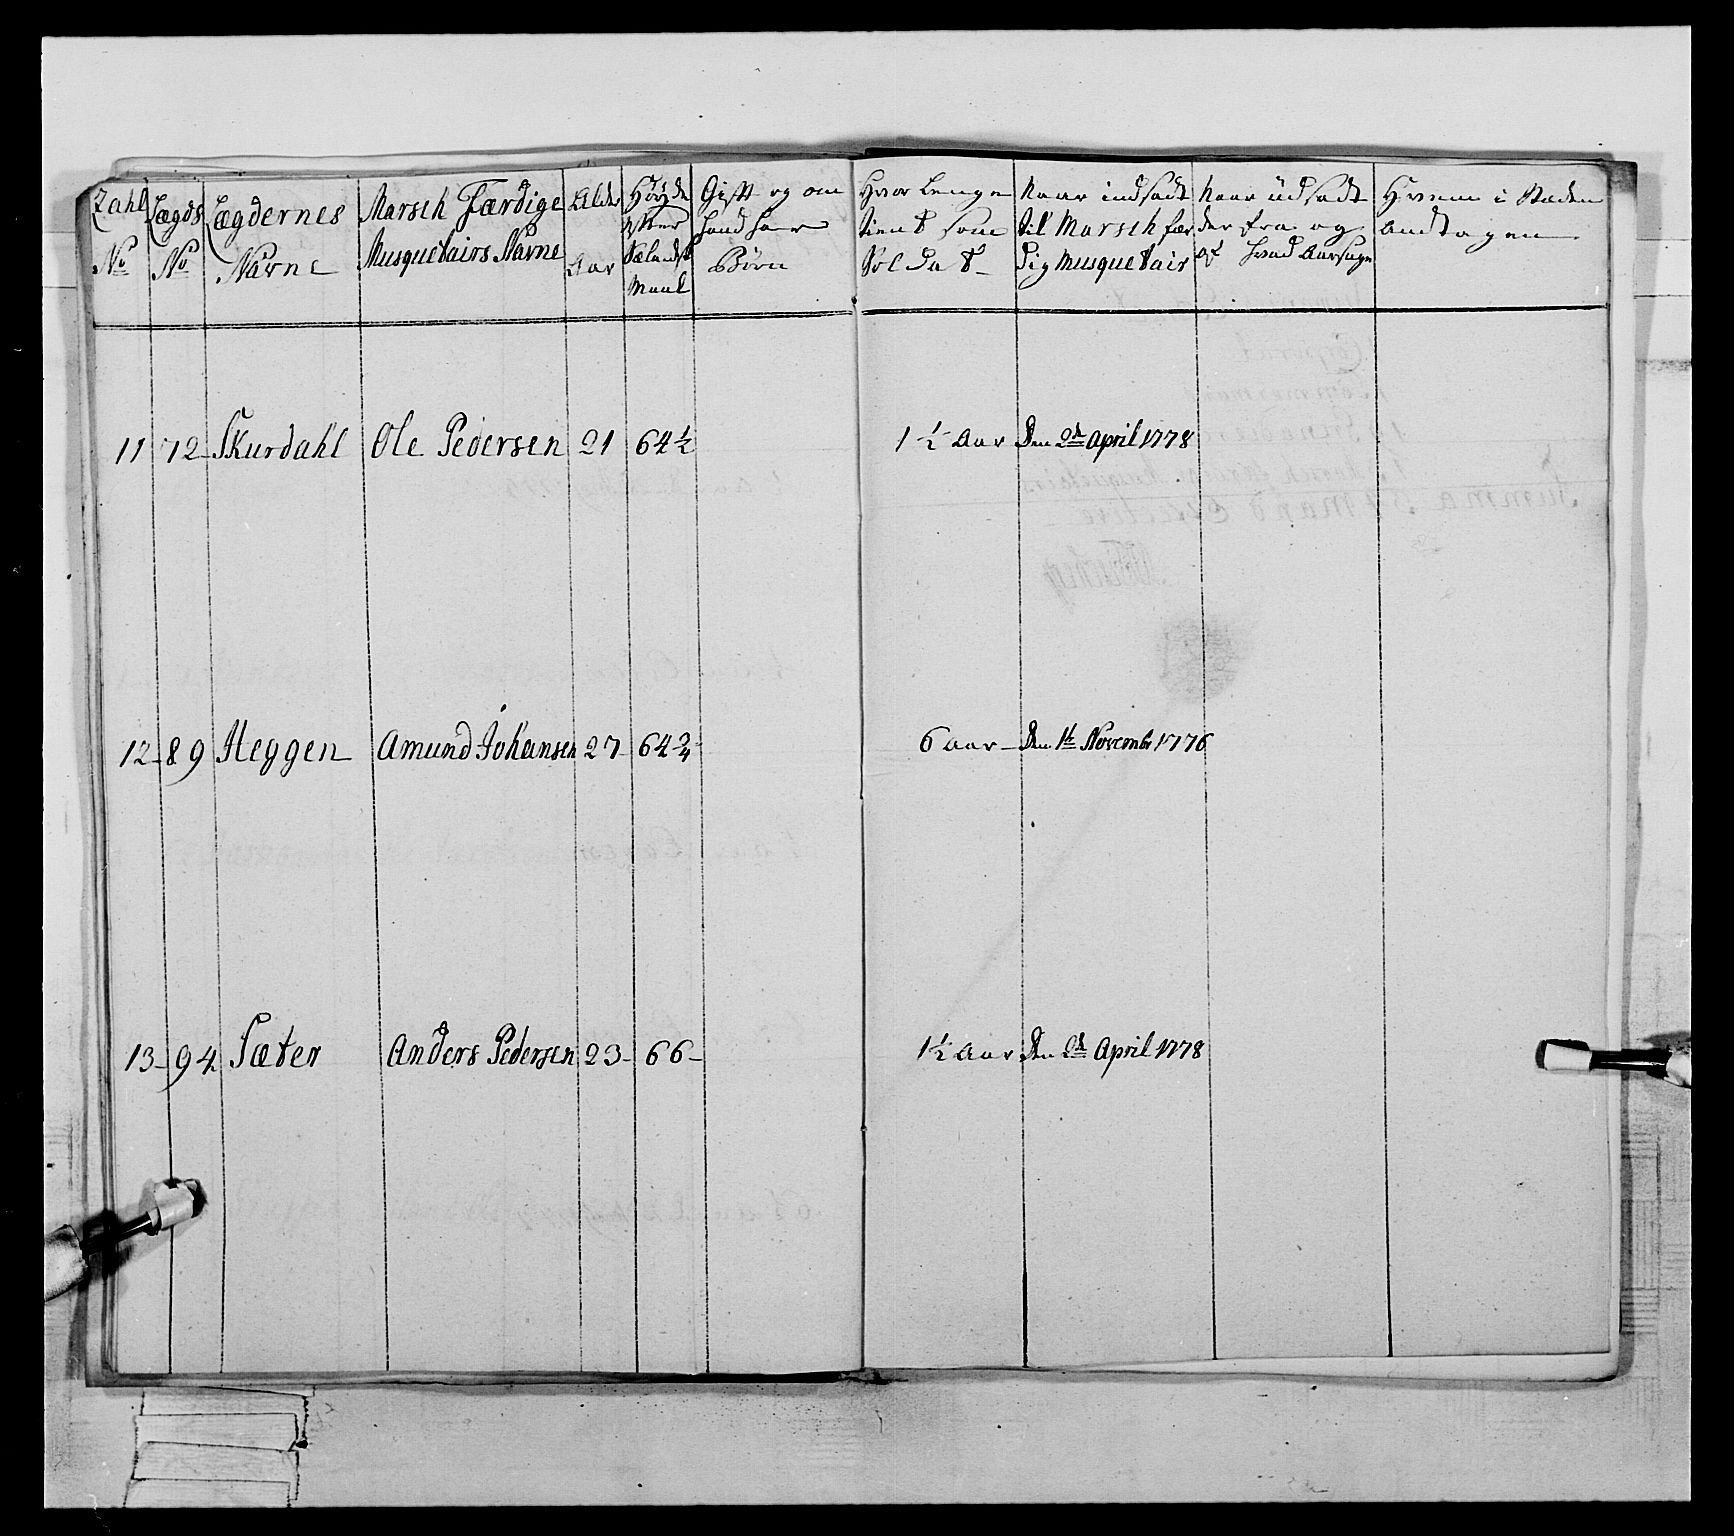 Zahl No | Lægds No | Lægdernes Navne | Marsch Færdige Musquetairs Navne | Alder Aar | Höyde efter Sælandsk Maal | Gift og om hand har Börn | Hvor Lenge tient som Soldat | Naar indsadt til Marsch færdig Musquetair | Naar udsadt der fra og af hvad Aarsage | Hvem i Staden andtagen
11 | 72 | Skurdahl | Ole Pedersen | 21 | 64½ | | 1½ Aar | Den 2d April 1778
12 | 89 | Heggen | Amund Johansen | 27 | 64¾ | | 6 aar | Den 1t Novembr 1776
13 | 94 | Sæter | Anders Pedersen | 23 | 66 | | 1½ Aar | Den 2d April 1778